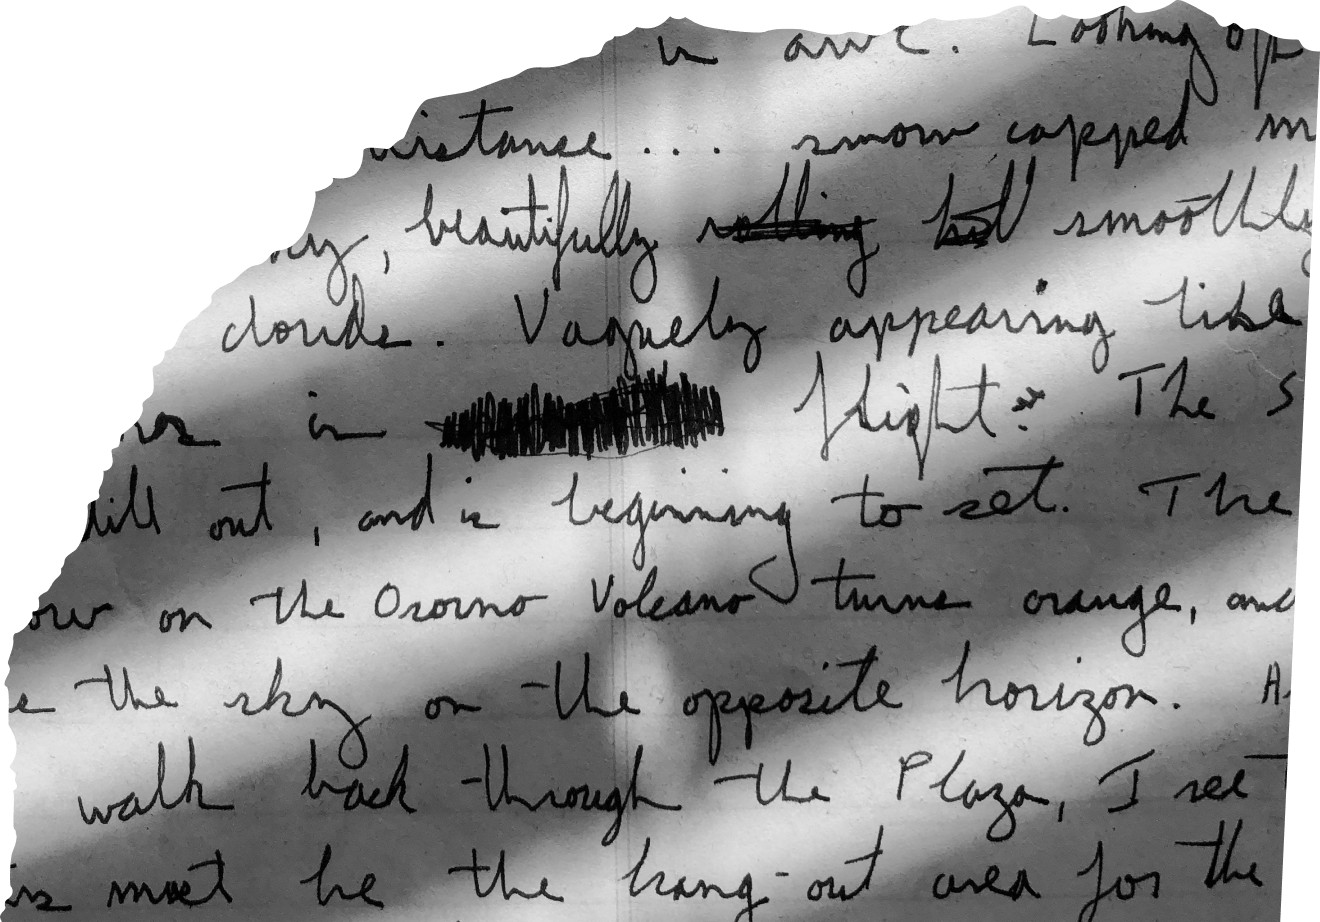 in awe. Looking
distance... snow capped
, beautifully rolling but smoothly
clouds. Vaguely appearing like
in flight. The
still out, and is beginning to set. The
on the Osorno Volcano turns orange, and
the sky on the opposite horizon.
walk back through the Plaza, I see
must be the hang-out area for the